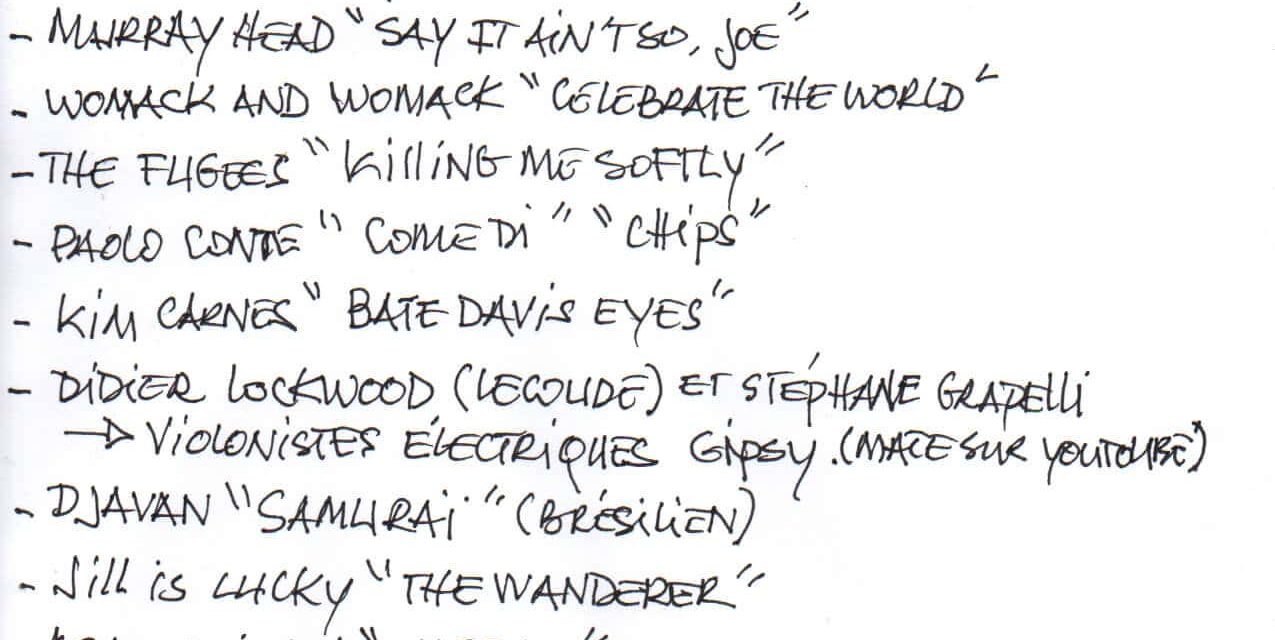 - MURRAY HEAD "SAY IT AIN'T SO, JOE"
- WOMACK AND WOMACK "CELEBRATE THE WORLD"
- THE FUGEES "KILLING ME SOFTLY"
- PAOLO CONTE "COME DI" "CHIPS"
- KIM CARNES "BATE DAVIS EYES"
- DIDIER LOCKWOOD (LECOUDE) ET STÉPHANE GRAPELLI
→ VIOLONISTES ÉLECTRIQUES GIPSY. (MATE SUR YOUTOUBE)
- DJAVAN "SAMURAI" (BRÉSILIEN)
- JILL IS LUCKY "THE WANDERER"